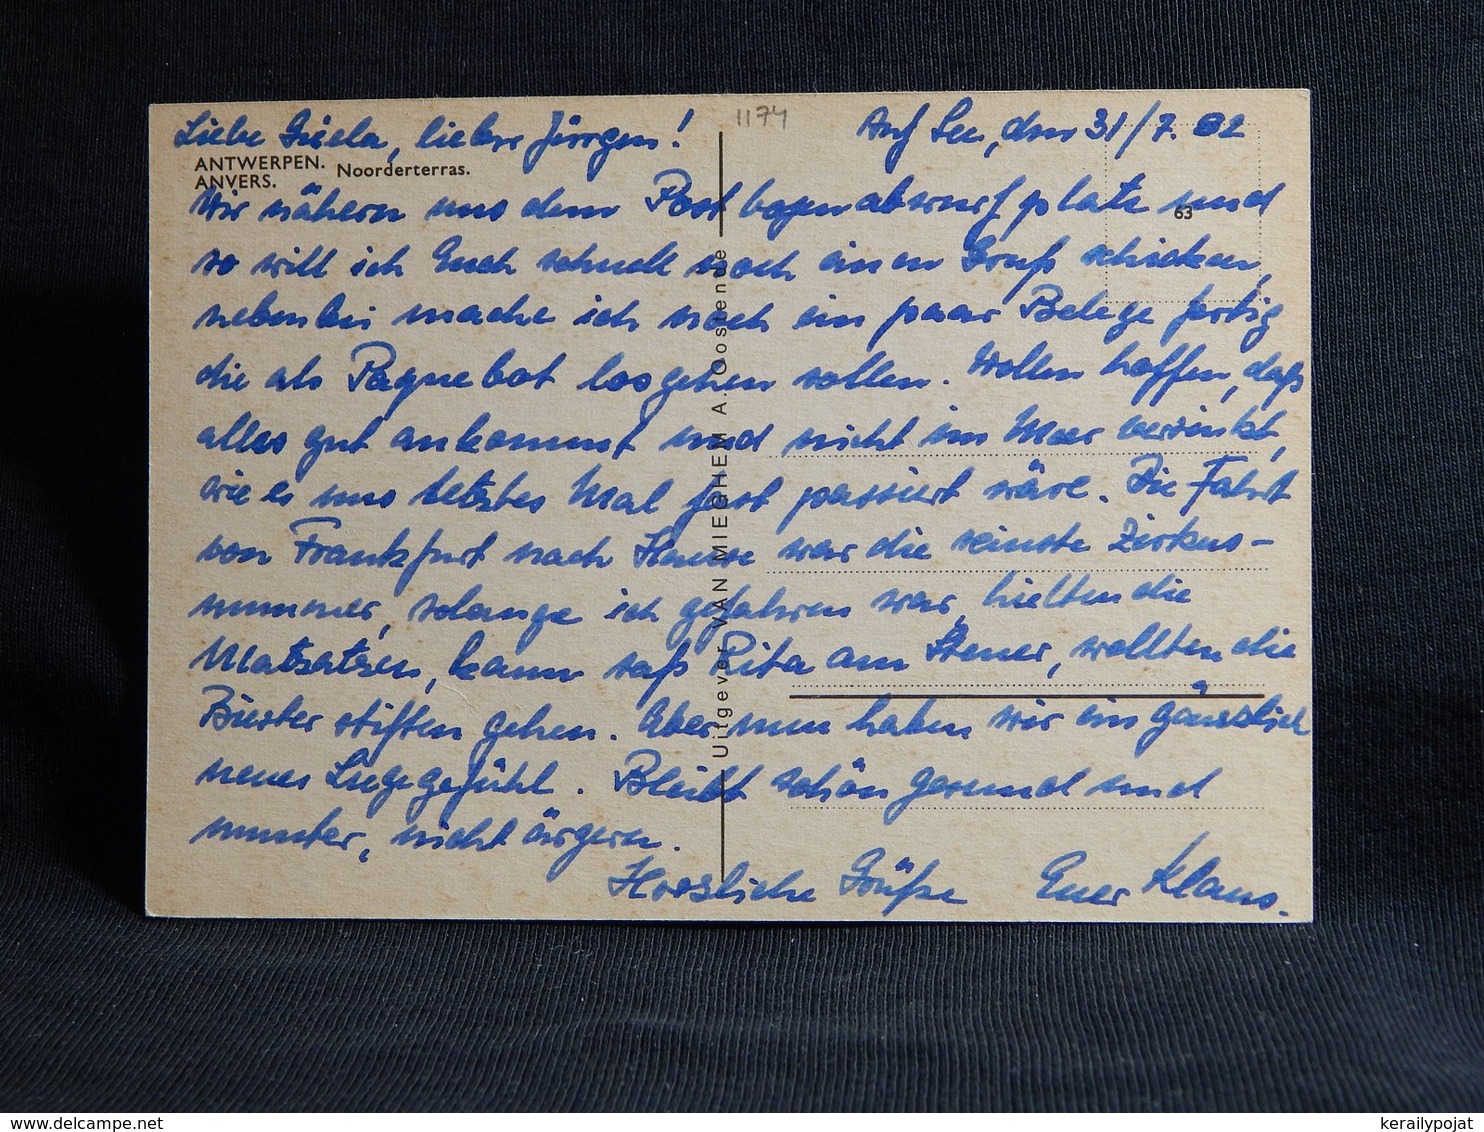 1174
Liebe Gisela, lieber Jürgen! Auf See, den 31/7. 82
ANTWERPEN.
ANVERS.
Noorderterras.
63
Wir nähern uns dem Postbojenabwurfplatz und
so will ich Euch schnell noch einen Gruß schicken,
nebenbei mache ich noch ein paar Belege fertig
die als Paquebot losgehen sollen. Wollen hoffen, daß
alles gut ankommt und nicht im Meer versinkt,
wie es uns letztes Mal fast passiert wäre. Die Fahrt
von Frankfurt nach Hause war die reinste Zirkus-
nummer, solange ich gefahren war, hielten die
Matratzen, kaum saß Rita am Steuer, wollten die
Biester stiften gehen. Aber nun haben wir ein gänzlich
neues Liegegefühl. Bleibt schön gesund und
munter, nicht ärgern.
Herzliche Grüße Euer Klaus.
Uitgever VAN MIEGHEM A. Oostende
kerailypojat